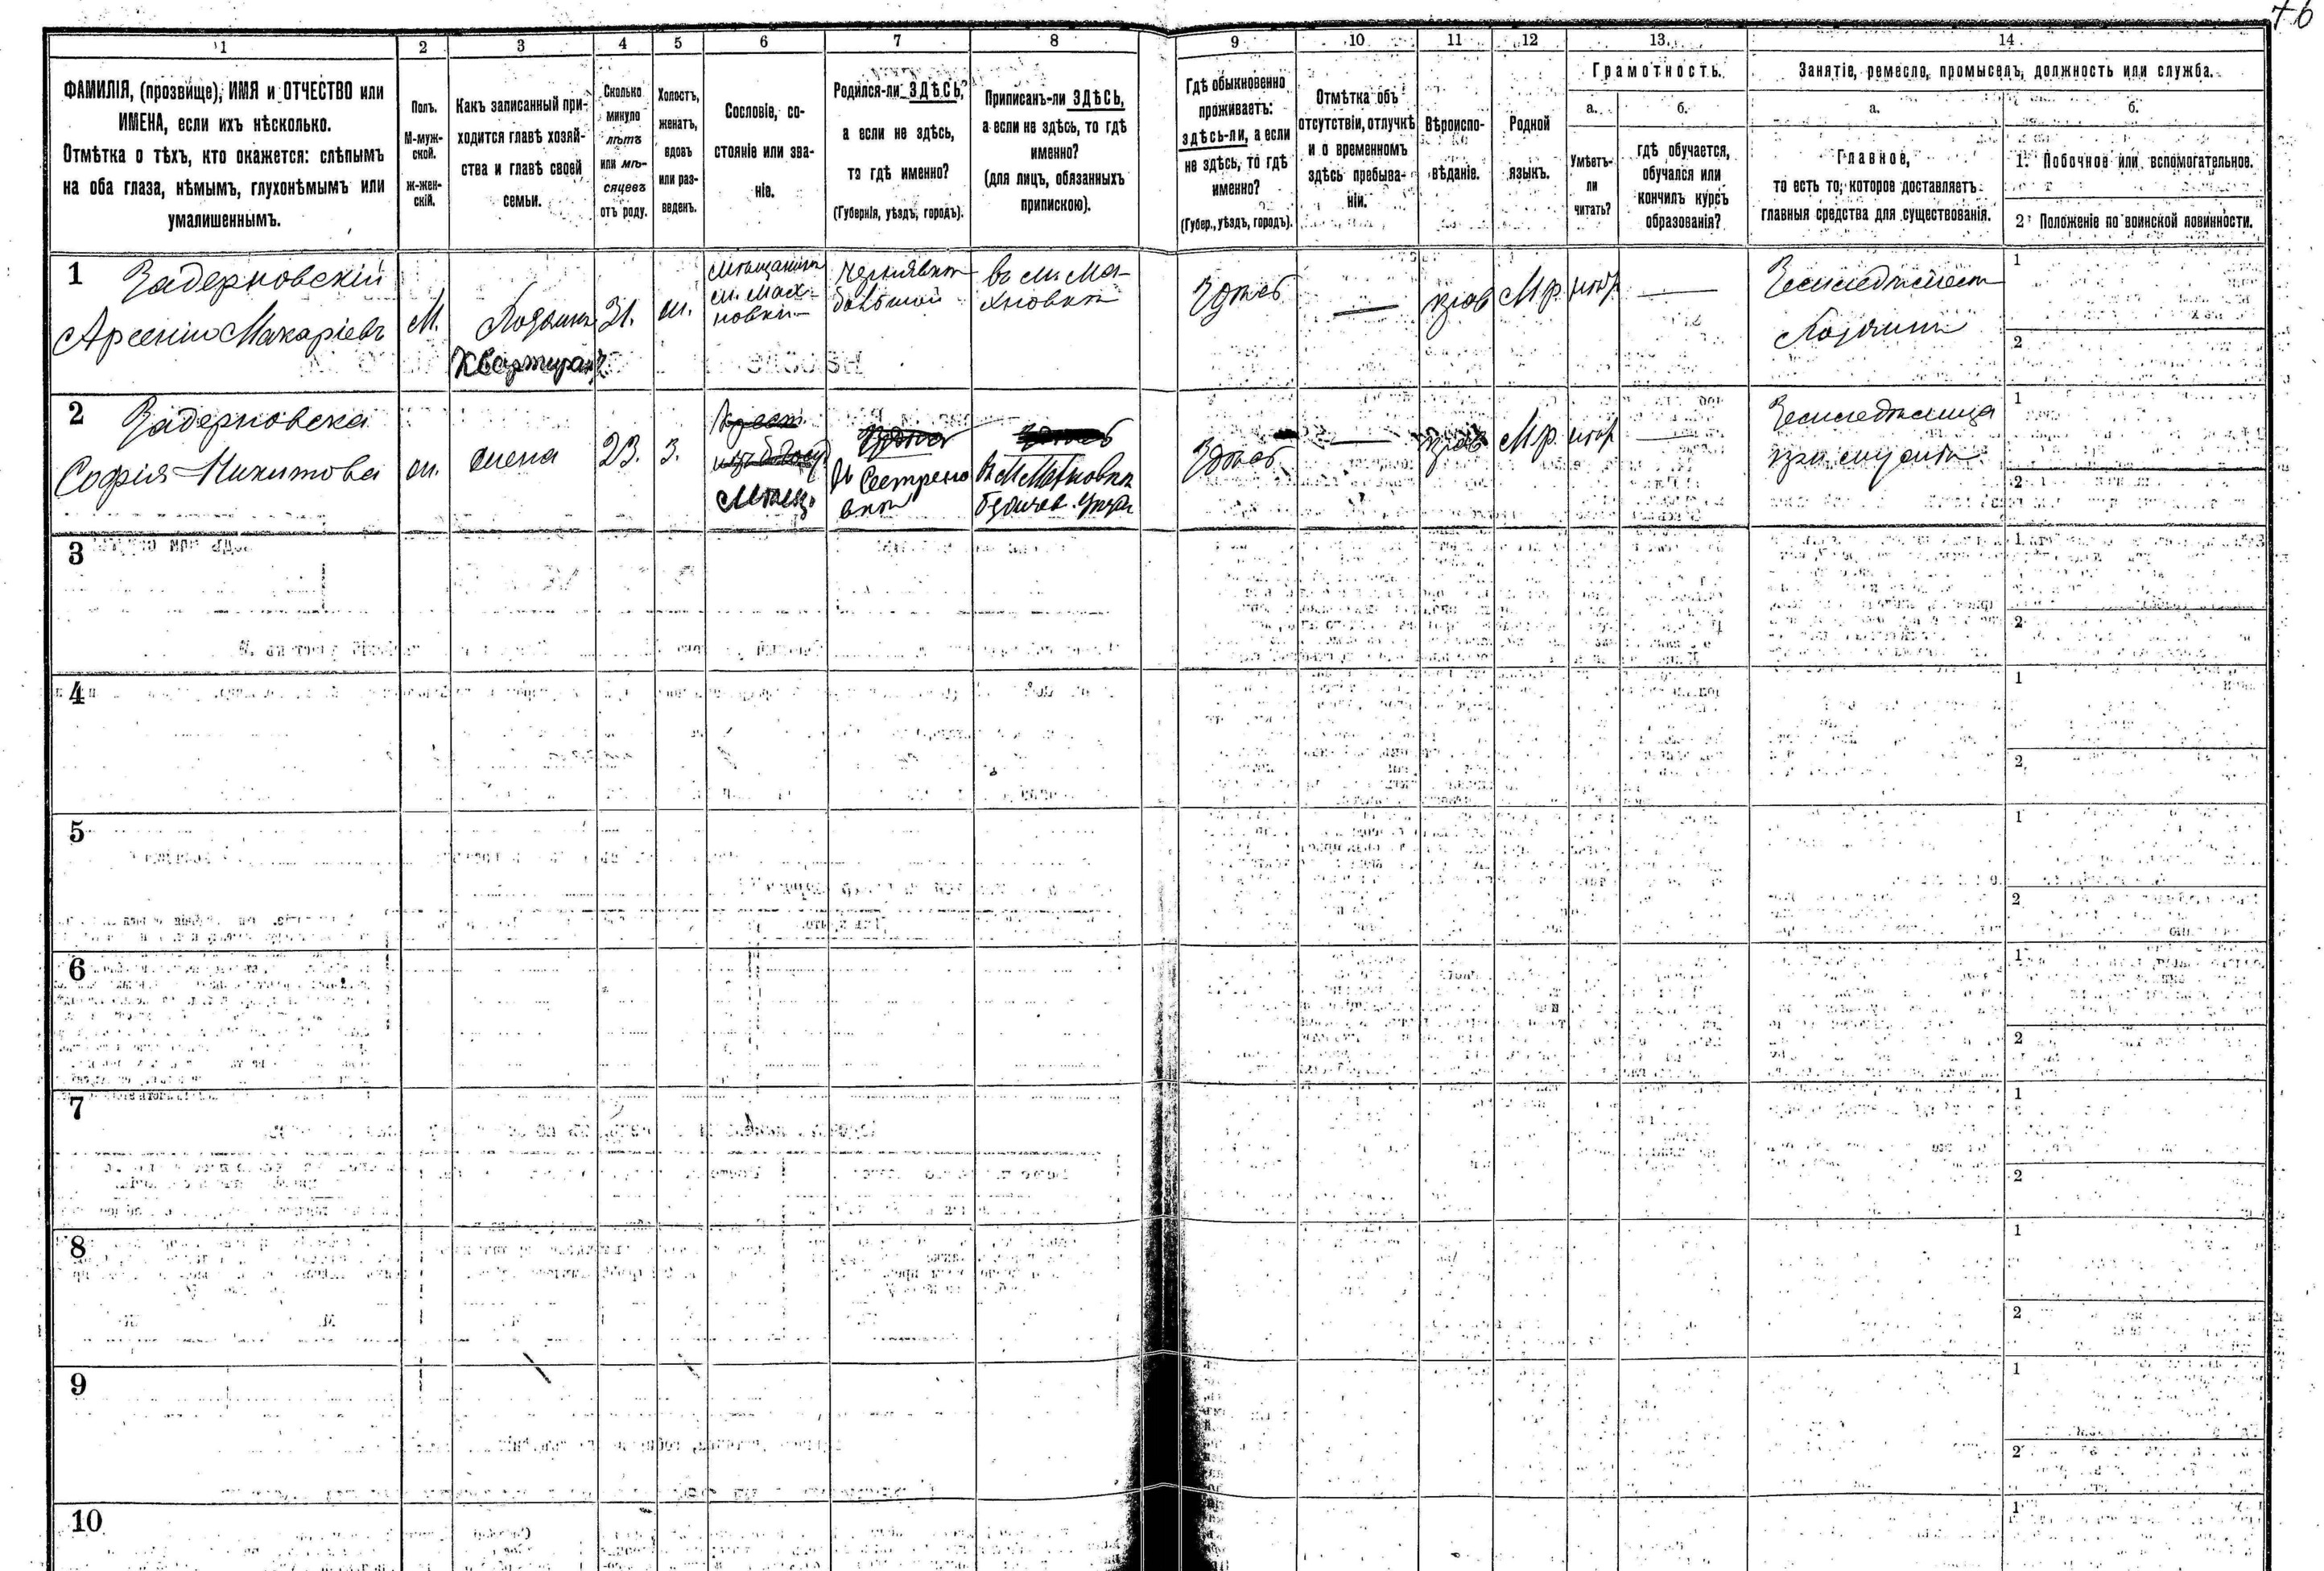 46
1
2
3
4
5
6
7
8
9
10
11
12
13.
14
ФАМИЛІЯ, (прозвище), ИМЯ и ОТЧЕСТВО или
ИМЕНА, если ихъ нѣсколько.
Отмѣтка о тѣхъ, кто окажется: слѣпымъ
на оба глаза, нѣмымъ, глухонѣмымъ или
умалишеннымъ.
Полъ.
М-муж-
ской.
Ж-жен-
скій.
Какъ записанный при-
ходится главѣ хозяй-
ства и главѣ своей
семьи.
Сколько
минуло
лѣтъ
или мѣ-
сяцевъ
отъ роду.
Холостъ,
женатъ,
вдовъ
или раз-
веденъ.
Сословіе, со-
стояніе или зва-
ніе.
Родился-ли ЗДѢСЬ,
а если не здѣсь,
то гдѣ именно?
(Губернія, уѣздъ, городъ).
Приписанъ-ли ЗДѢСЬ,
а если не здѣсь, то гдѣ
именно?
(для лицъ, обязанныхъ
припискою).
Гдѣ обыкновенно
проживаетъ:
здѣсь-ли, а если
не здѣсь, то гдѣ
именно?
(Губер., уѣздъ, городъ).
Отмѣтка объ
отсутствіи, отлучкѣ
и о временномъ
здѣсь пребыва-
ніи.
Вѣроиспо-
вѣданіе.
Родной
языкъ.
Грамотность.
а.
Умѣетъ-
ли
читать?
б.
гдѣ обучается,
обучался или
кончилъ курсъ
образованія?
Занятіе, ремесло, промыселъ, должность или служба.
а.
Главное,
то есть то, которое доставляетъ
главныя средства для существованія.
б.
1. Побочное или вспомогательное.
2 Положеніе по воинской повинности.
1 Задерновскій
Арсеній Макаріевъ
М.
Хозяинъ
Квартирант
31.
ж.
мѣщанинъ
м. Мах-
новки
Чернявка
большой
въ м. Ма-
хновкѣ
Здѣсь
—
прав
Мр
нѣт
—
Хозяинъ
1
2
2 Задерновска
Софія Никитова
ж.
жена
23.
З.
Мѣщ.
Здѣсь
въ Сестрено
вкѣ
Здѣсь
въ М Махновкѣ
Бердичев. уѣзда
Здѣсь
—
прав
Мр
нѣт
—
при мужѣ
1
2
3
1
2
4
1
2
5
1
2
6
1
2
7
1
2
8
1
2
9
1
2
10
1